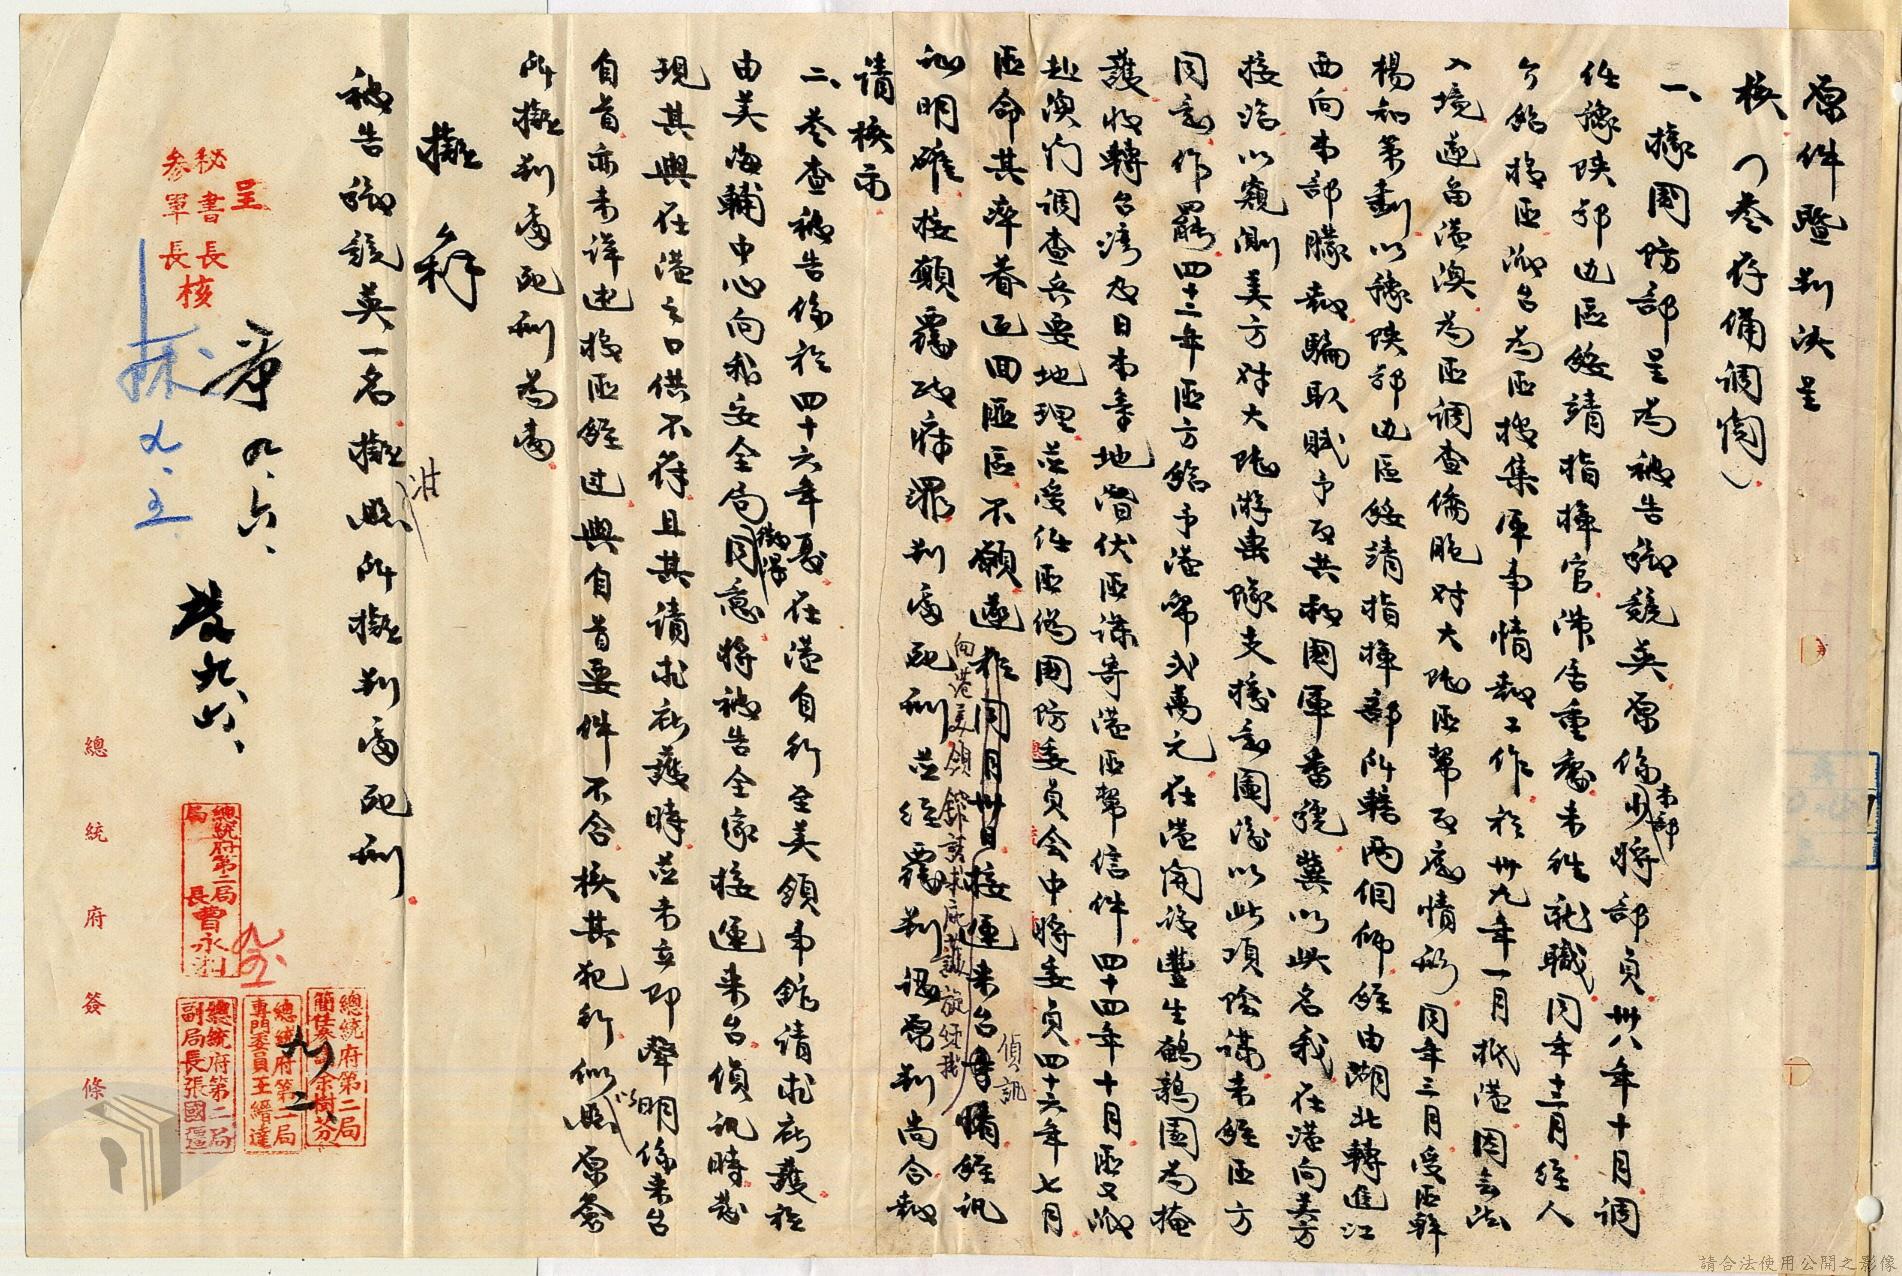 原件暨判決呈
核(卷存備調閱)
一、據國防部呈為被告鄒競英原係本部少將部員卅八年十月調
任豫陝鄂邊區綏靖指揮官涤居重慶未往就職同年十二月經人
介紹投匪派台為匪搜集軍事情報工作於卅九年一月抵港因無法
入境遂留港澳為匪調查僑胞對大陸匪幫反應情形同年三月受匪幹
楊和策動以豫陝鄂邊區綏靖指揮部所轄兩個師經由湖北轉進江
西向本部朦報騙取賦予反共救國軍番號冀以此名義在港向美方
接洽以窺測美方對大陸游擊隊支援意圖後以此項陰謀未經匪方
同意作罷四十三年匪方給予港幣弍萬元在港開設豐生鵪鶉園為掩
護收轉台灣及日本等地潛伏匪諜寄港匪幫信件四十四年十月匪又派
赴澳門調查兵要地理並受任匪偽國防委員会中將委員四十六年七月
匪命其率眷返回匪區不願遂於同月卅日接運來台等情經訊
向港美領館請求庇護旋經我
偵訊
証明確核顛覆政府罪判處死刑並經覆判認原判尚合報
請核示
二、卷查被告係於四十六年夏在港自行至美領事館請求庇護旋
由美海輔中心向我安全局徵得同意將被告全家接運來台偵訊時發
現其與在港之口供不符且其請求庇護時並未立即聲明係來台
自首亦未詳述投匪經過與自首要件不合核其犯行似以照原審
所擬判處死刑為當
擬辦
被告鄒競英一名擬准照所擬判處死刑
呈
秘書長
參軍長
核
九、六、
九、五、
九六、
總統府第二局
局長曹永湘
總統府第二局
簡任參議余樹芬
總統府第二局
專門委員王縉達
總統府第二局
副局長張國疆
總統府簽條
請合法使用公開之影像